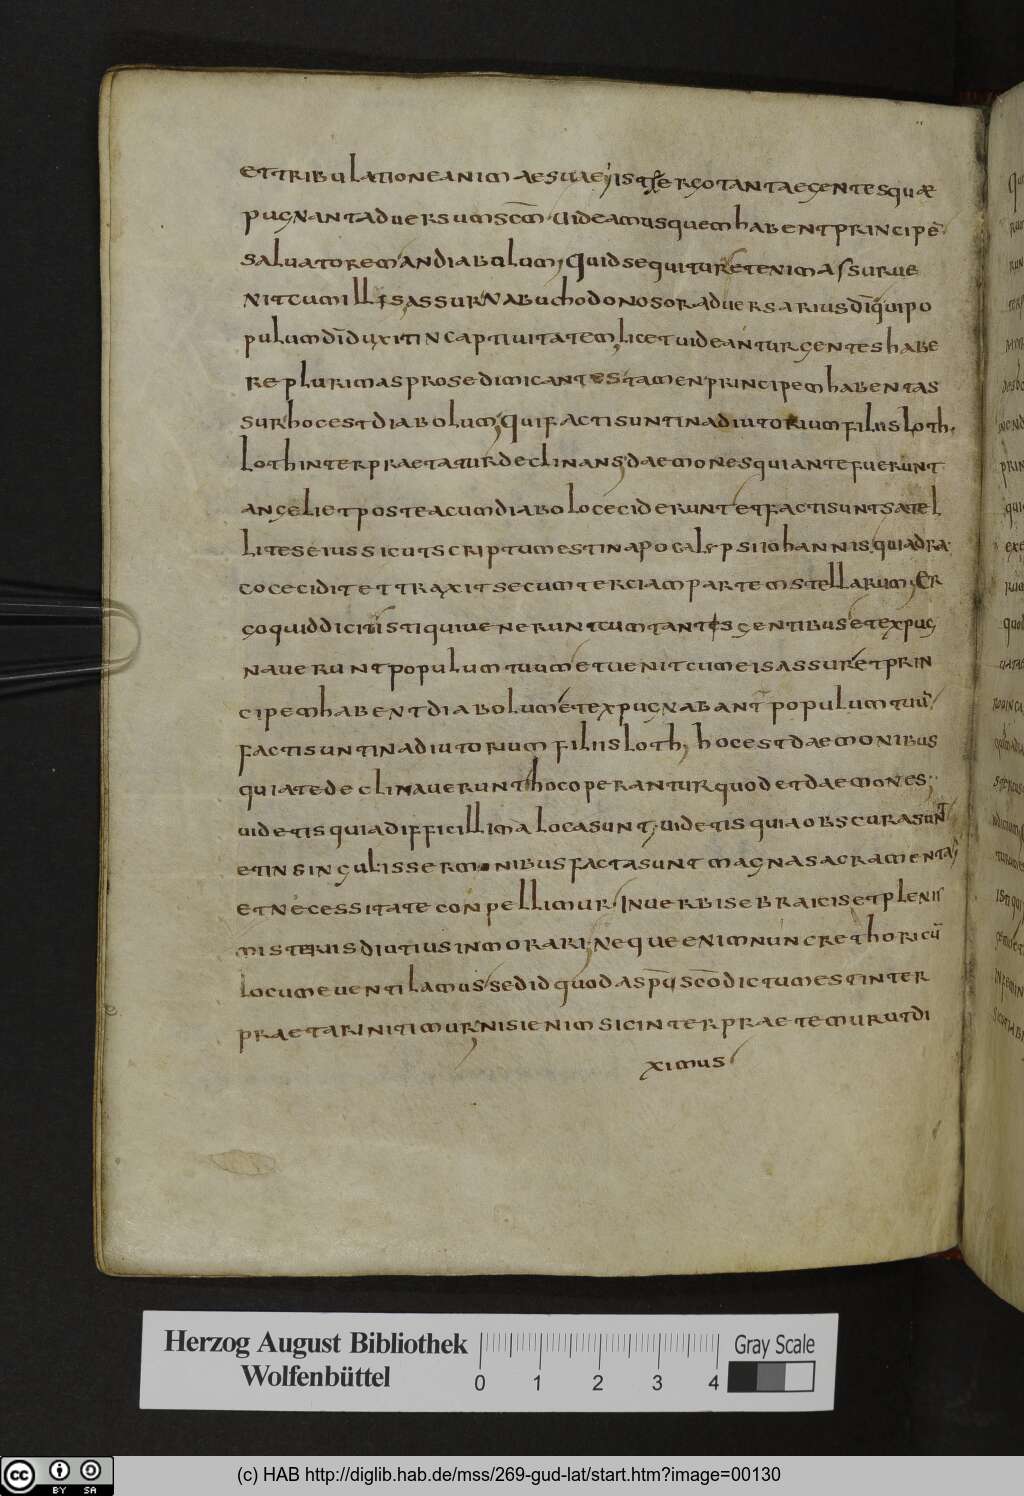 et tribulatione animae suae; iste ergo tantae gentes quae
pugnant aduersum scm uideamus quem habent principē
saluatorem an diabolum; Quid sequitur etenim assur ue
nit cum illis assur Nabuchodonosor aduersarius dī qui po
pulum dī duxit in captiuitatem; licet uideantur gentes habe
re plurimas pro se dimicantes tamen principem habent as
sur hoc est diabolum; Qui facti sunt in adiutorium filiis loth.
loth interpraetatur declinans; daemones qui ante fuerunt
angeli et postea cum diabolo ceciderunt et facti sunt satel
lites eius sicut scriptum est in apocalepsi iohannis quia dra
co cecidit et traxit secum terciam partem stellarum; Er
go quid dicit isti qui uenerunt cum tantis gentibus et expug
nauerunt populum tuum et uenit cum eis assur et prin
cipem habent diabolum et expugnabant populum tuū
facti sunt in adiutorium filiis loth; hoc est daemonibus
quia te declinauerunt hoc operantur quod et daemones;
uidetis quia difficillima loca sunt; uidetis quia obscura sunt
et in singulis sermonibus facta sunt magna sacramenta
et necessitate conpellimur In uerbis ebraicis et plenis
misteriis diutius inmorari; Neque enim nunc rethoricū
locum euentilamus sed id quod a spū sco dictum est inter
praetari nitimur; nisi enim sic interpraetemur ut di
ximus
Herzog August Bibliothek
Wolfenbüttel
0 1 2 3 4
Gray Scale
cc BY SA
(c) HAB http://diglib.hab.de/mss/269-gud-lat/start.htm?image=00130